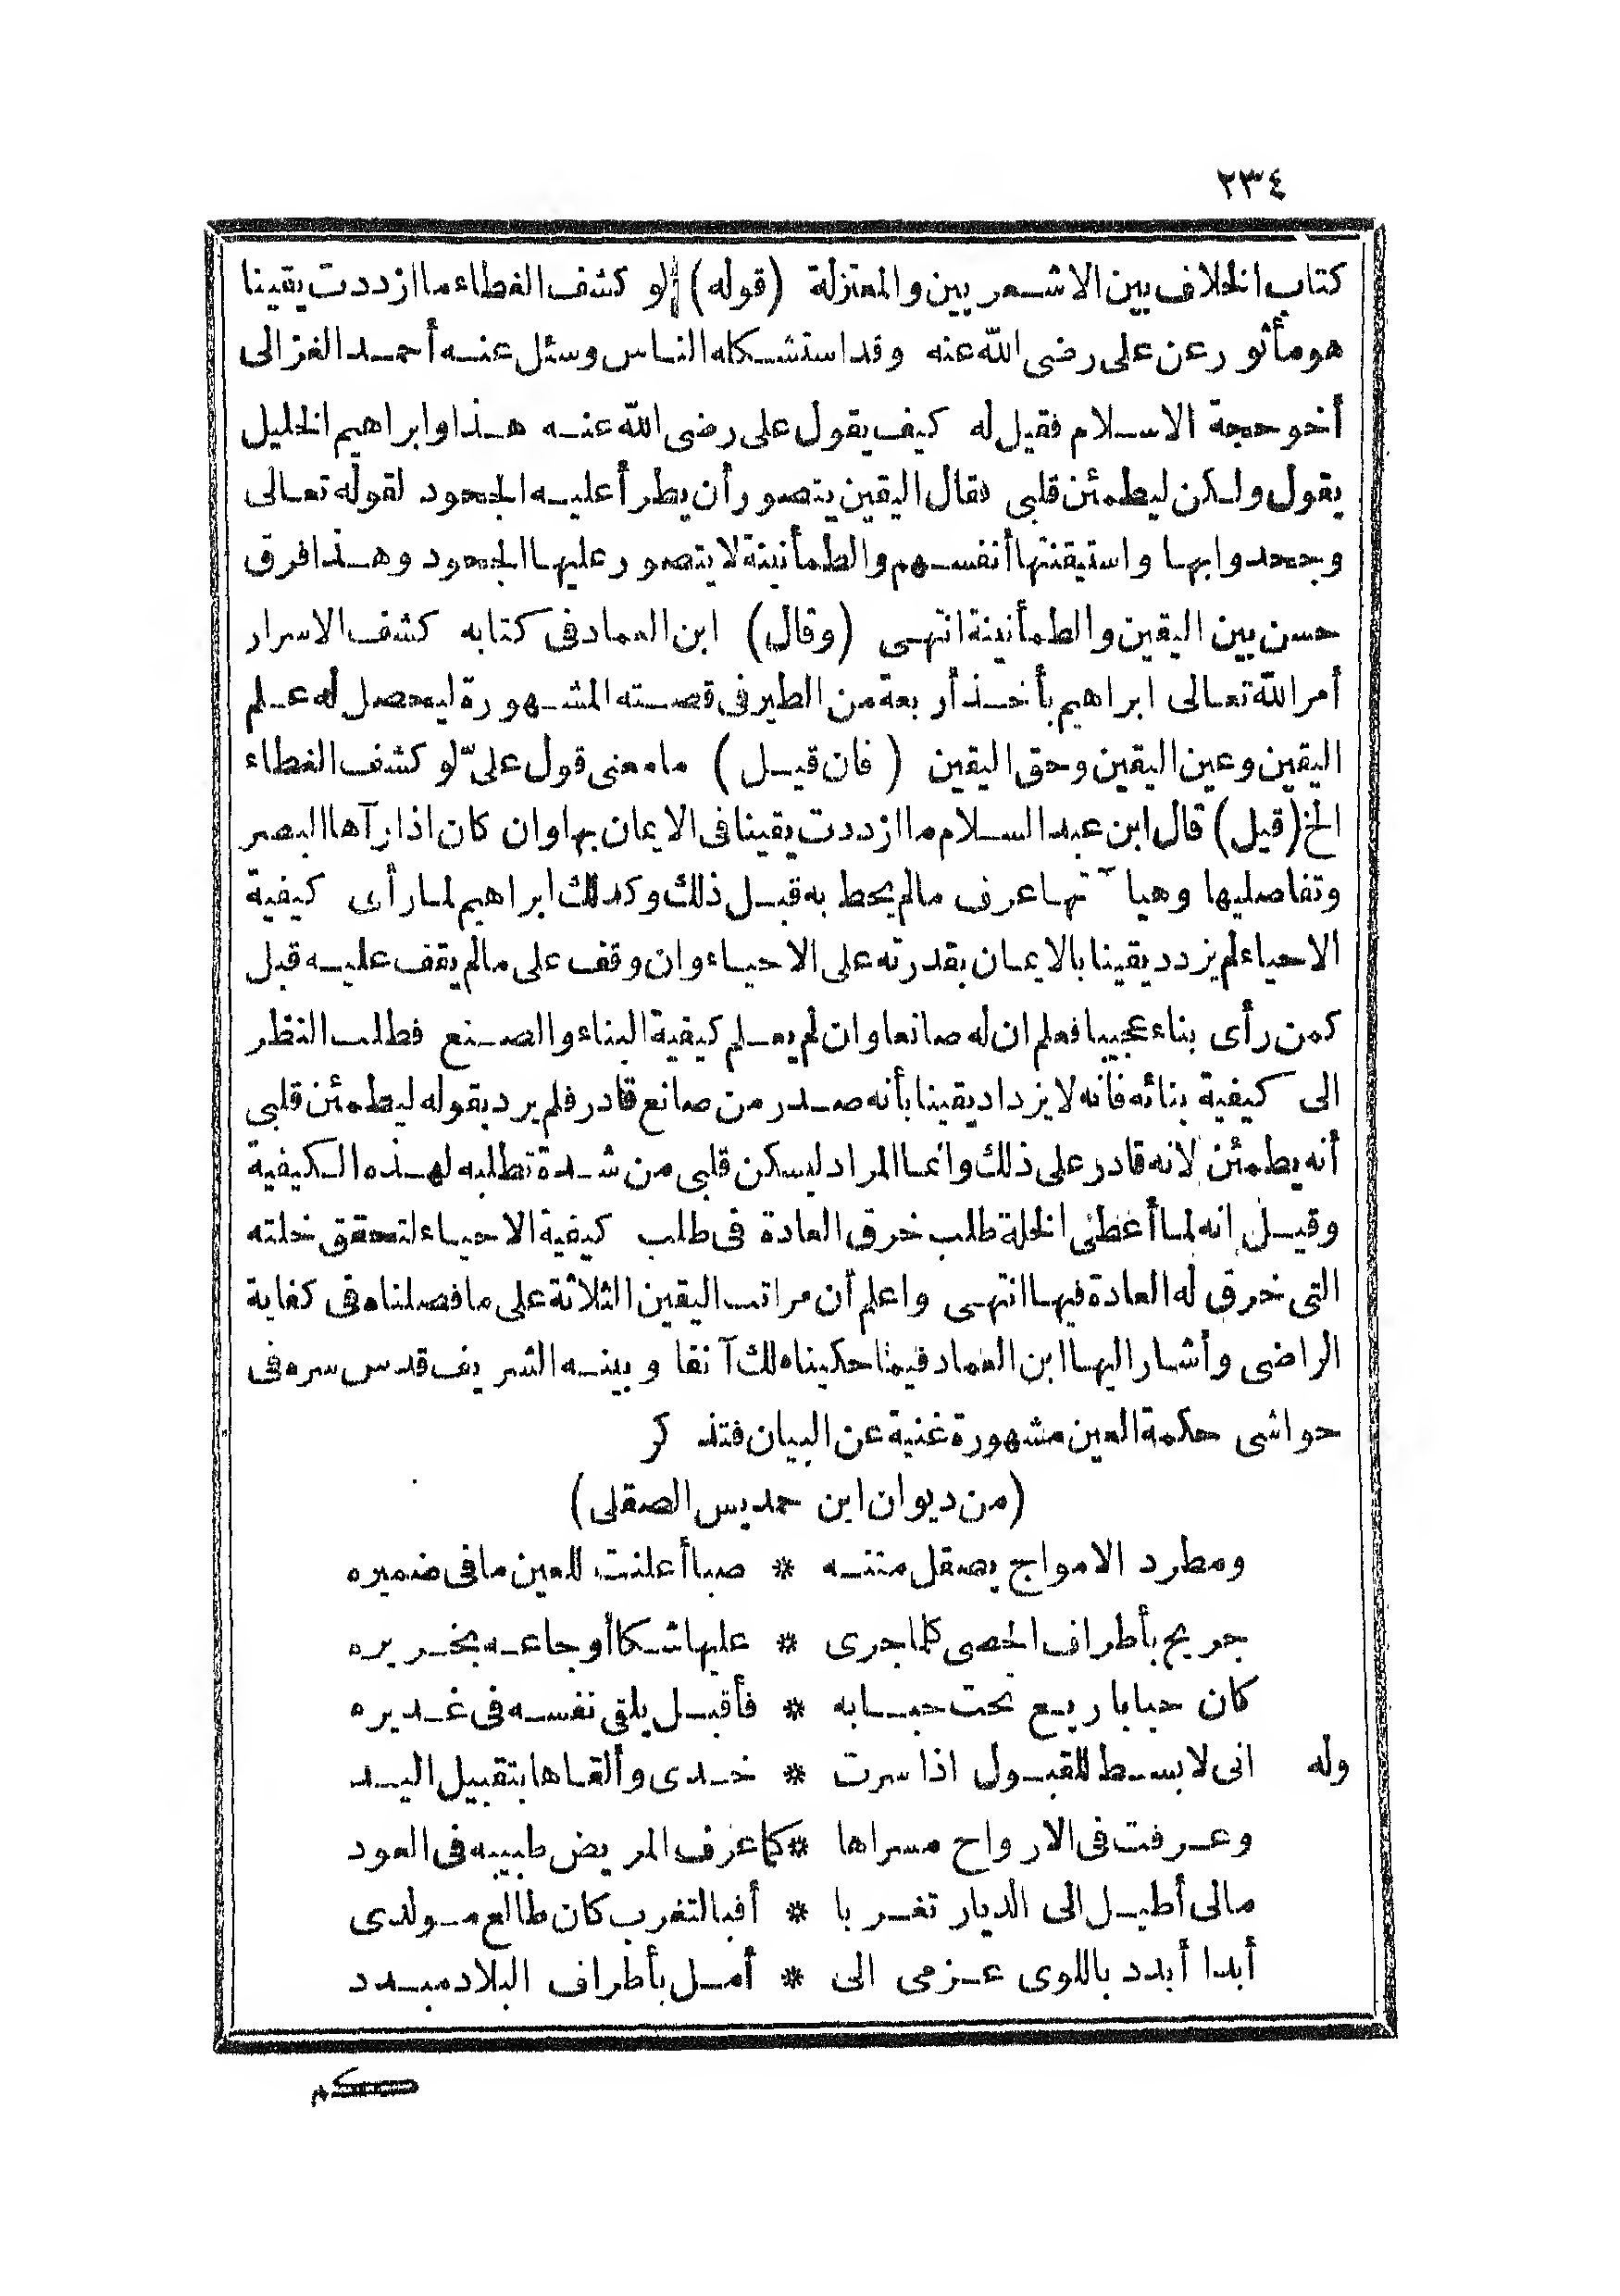 ٢٣٤
كتاب الخلاف بين الاشعريين والمعتزلة (قوله) لو كشف الغطاء ما ازددت يقينا
هو مأثور عن على رضى الله عنه وقد استشكله الناس وسئل عنه أحمد الغزالى
أخو حجة الاسلام فقيل له كيف يقول على رضى الله عنه هذا وابراهيم الخليل
يقول ولكن ليطمئن قلبى فقال اليقين يتصور أن يطرأ عليه الجحود لقوله تعالى
وجحدوا بها واستيقنتها أنفسهم والطمأنينة لا يتصور عليها الجحود وهذا فرق
حسن بين اليقين والطمأنينة انتهى (وقال) ابن العماد فى كتابه كشف الاسرار
أمر الله تعالى ابراهيم بأخذ أربعة من الطير فى قصته المشهورة ليحصل له علم
اليقين وعين اليقين وحق اليقين (فان قيل) ما معنى قول علىّ لو كشف الغطاء
الخ (قيل) قال ابن عبد السلام ما ازددت يقينا فى الايمان بها وان كان اذا رآها البصر
وتفاصليها وهيآتها عرف ما لم يحط به قبل ذلك وكذلك ابراهيم لما رأى كيفية
الاحياء لم يزدد يقينا بالايمان بقدرته على الاحياء وان وقف على ما لم يقف عليه قبل
كمن رأى بناء عجيبا فعلم ان له صانعا وان لم يعلم كيفية البناء والصنع فطلب النظر
الى كيفية بنائه فانه لا يزداد يقينا بأنه صدر من صانع قادر فلم يرد بقوله ليطمئن قلبى
أنه يطمئن لانه قادر على ذلك وانما المراد ليسكن قلبى من شدة تطلبه لهذه الكيفية
وقيل انه لما أعطى الخلة طلب خرق العادة فى طلب كيفية الاحياء لتحقق خلته
التى خرق له العادة فيها انتهى واعلم أن مراتب اليقين الثلاثة على ما فصلناه فى كفاية
الراضى وأشار اليها ابن العماد فيما حكيناه لك آنفا وبينه الشريف قدس سره فى
حواشى حكمة العين مشهورة غنية عن البيان فتذكر
(من ديوان ابن حمديس الصقلى)
ومطرد الامواج يصقل متنه * صبا أعلنت للعين ما فى ضميره
جريح بأطراف الحصى كلما جرى * عليها شكا أوجاعه بخريره
كان حبابا ريع تحت حبابه * فأقبل يلقى نفسه فى غديره
وله انى لابسط للقبول اذا سرت * خدى وألقاها بتقبيل اليد
وعرفت فى الارواح مسراها * كما عرف المريض طبيبه فى العود
مالى أطيل الى الديار تغربا * أفبالتغرب كان طالع مولدى
أبدا أبدد باللوى عزمى الى * أمل بأطراف البلاد مبدد
كم